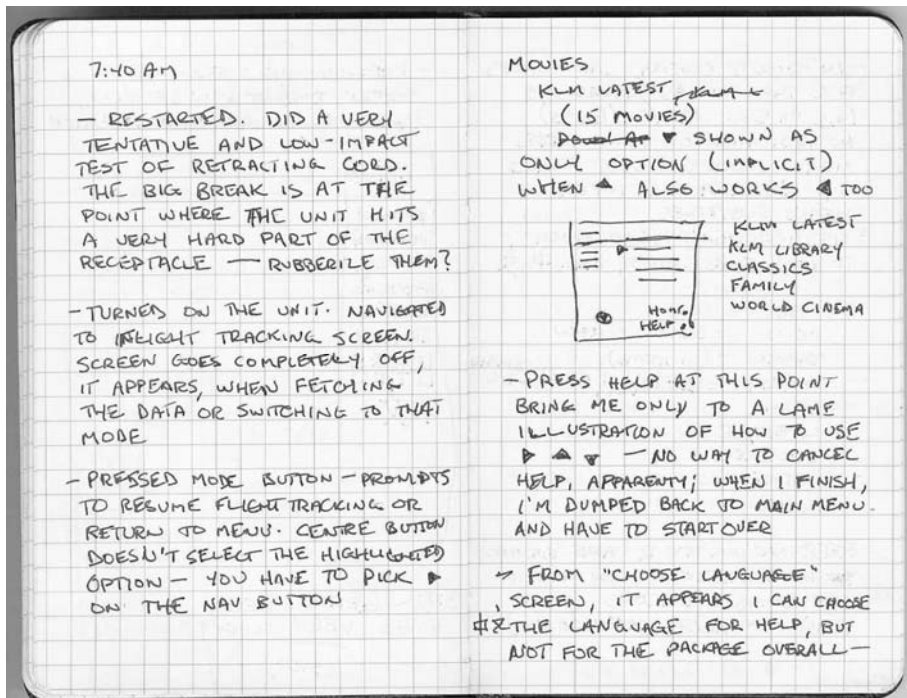 7:40 AM
— RESTARTED. DID A VERY
TENTATIVE AND LOW-IMPACT
TEST OF RETRACTING CORD.
THE BIG BREAK IS AT THE
POINT WHERE THE UNIT HITS
A VERY HARD PART OF THE
RECEPTACLE — RUBBERIZE THEM?
— TURNED ON THE UNIT. NAVIGATED
TO INFLIGHT TRACKING SCREEN.
SCREEN GOES COMPLETELY OFF,
IT APPEARS, WHEN FETCHING
THE DATA OR SWITCHING TO THAT
MODE
— PRESSED MODE BUTTON — PROMPTS
TO RESUME FLIGHT TRACKING OR
RETURN TO MENU. CENTRE BUTTON
DOESN'T SELECT THE HIGHLIGHTED
OPTION — YOU HAVE TO PICK ▶
ON THE NAV BUTTON
MOVIES
KLM LATEST
(15 MOVIES)
▼ SHOWN AS
ONLY OPTION (IMPLICIT)
WHEN ▲ ALSO WORKS ◀ TOO
KLM LATEST
KLM LIBRARY
CLASSICS
FAMILY
WORLD CINEMA
HOME
HELP
— PRESS HELP AT THIS POINT
BRING ME ONLY TO A LAME
ILLUSTRATION OF HOW TO USE
▶ ▲ ▼ — NO WAY TO CANCEL
HELP, APPARENTY; WHEN I FINISH,
I'M DUMPED BACK TO MAIN MENU.
AND HAVE TO START OVER
FROM "CHOOSE LANGUAGE"
SCREEN, IT APPEARS I CAN CHOOSE
THE LANGUAGE FOR HELP, BUT
NOT FOR THE PACKAGE OVERALL —